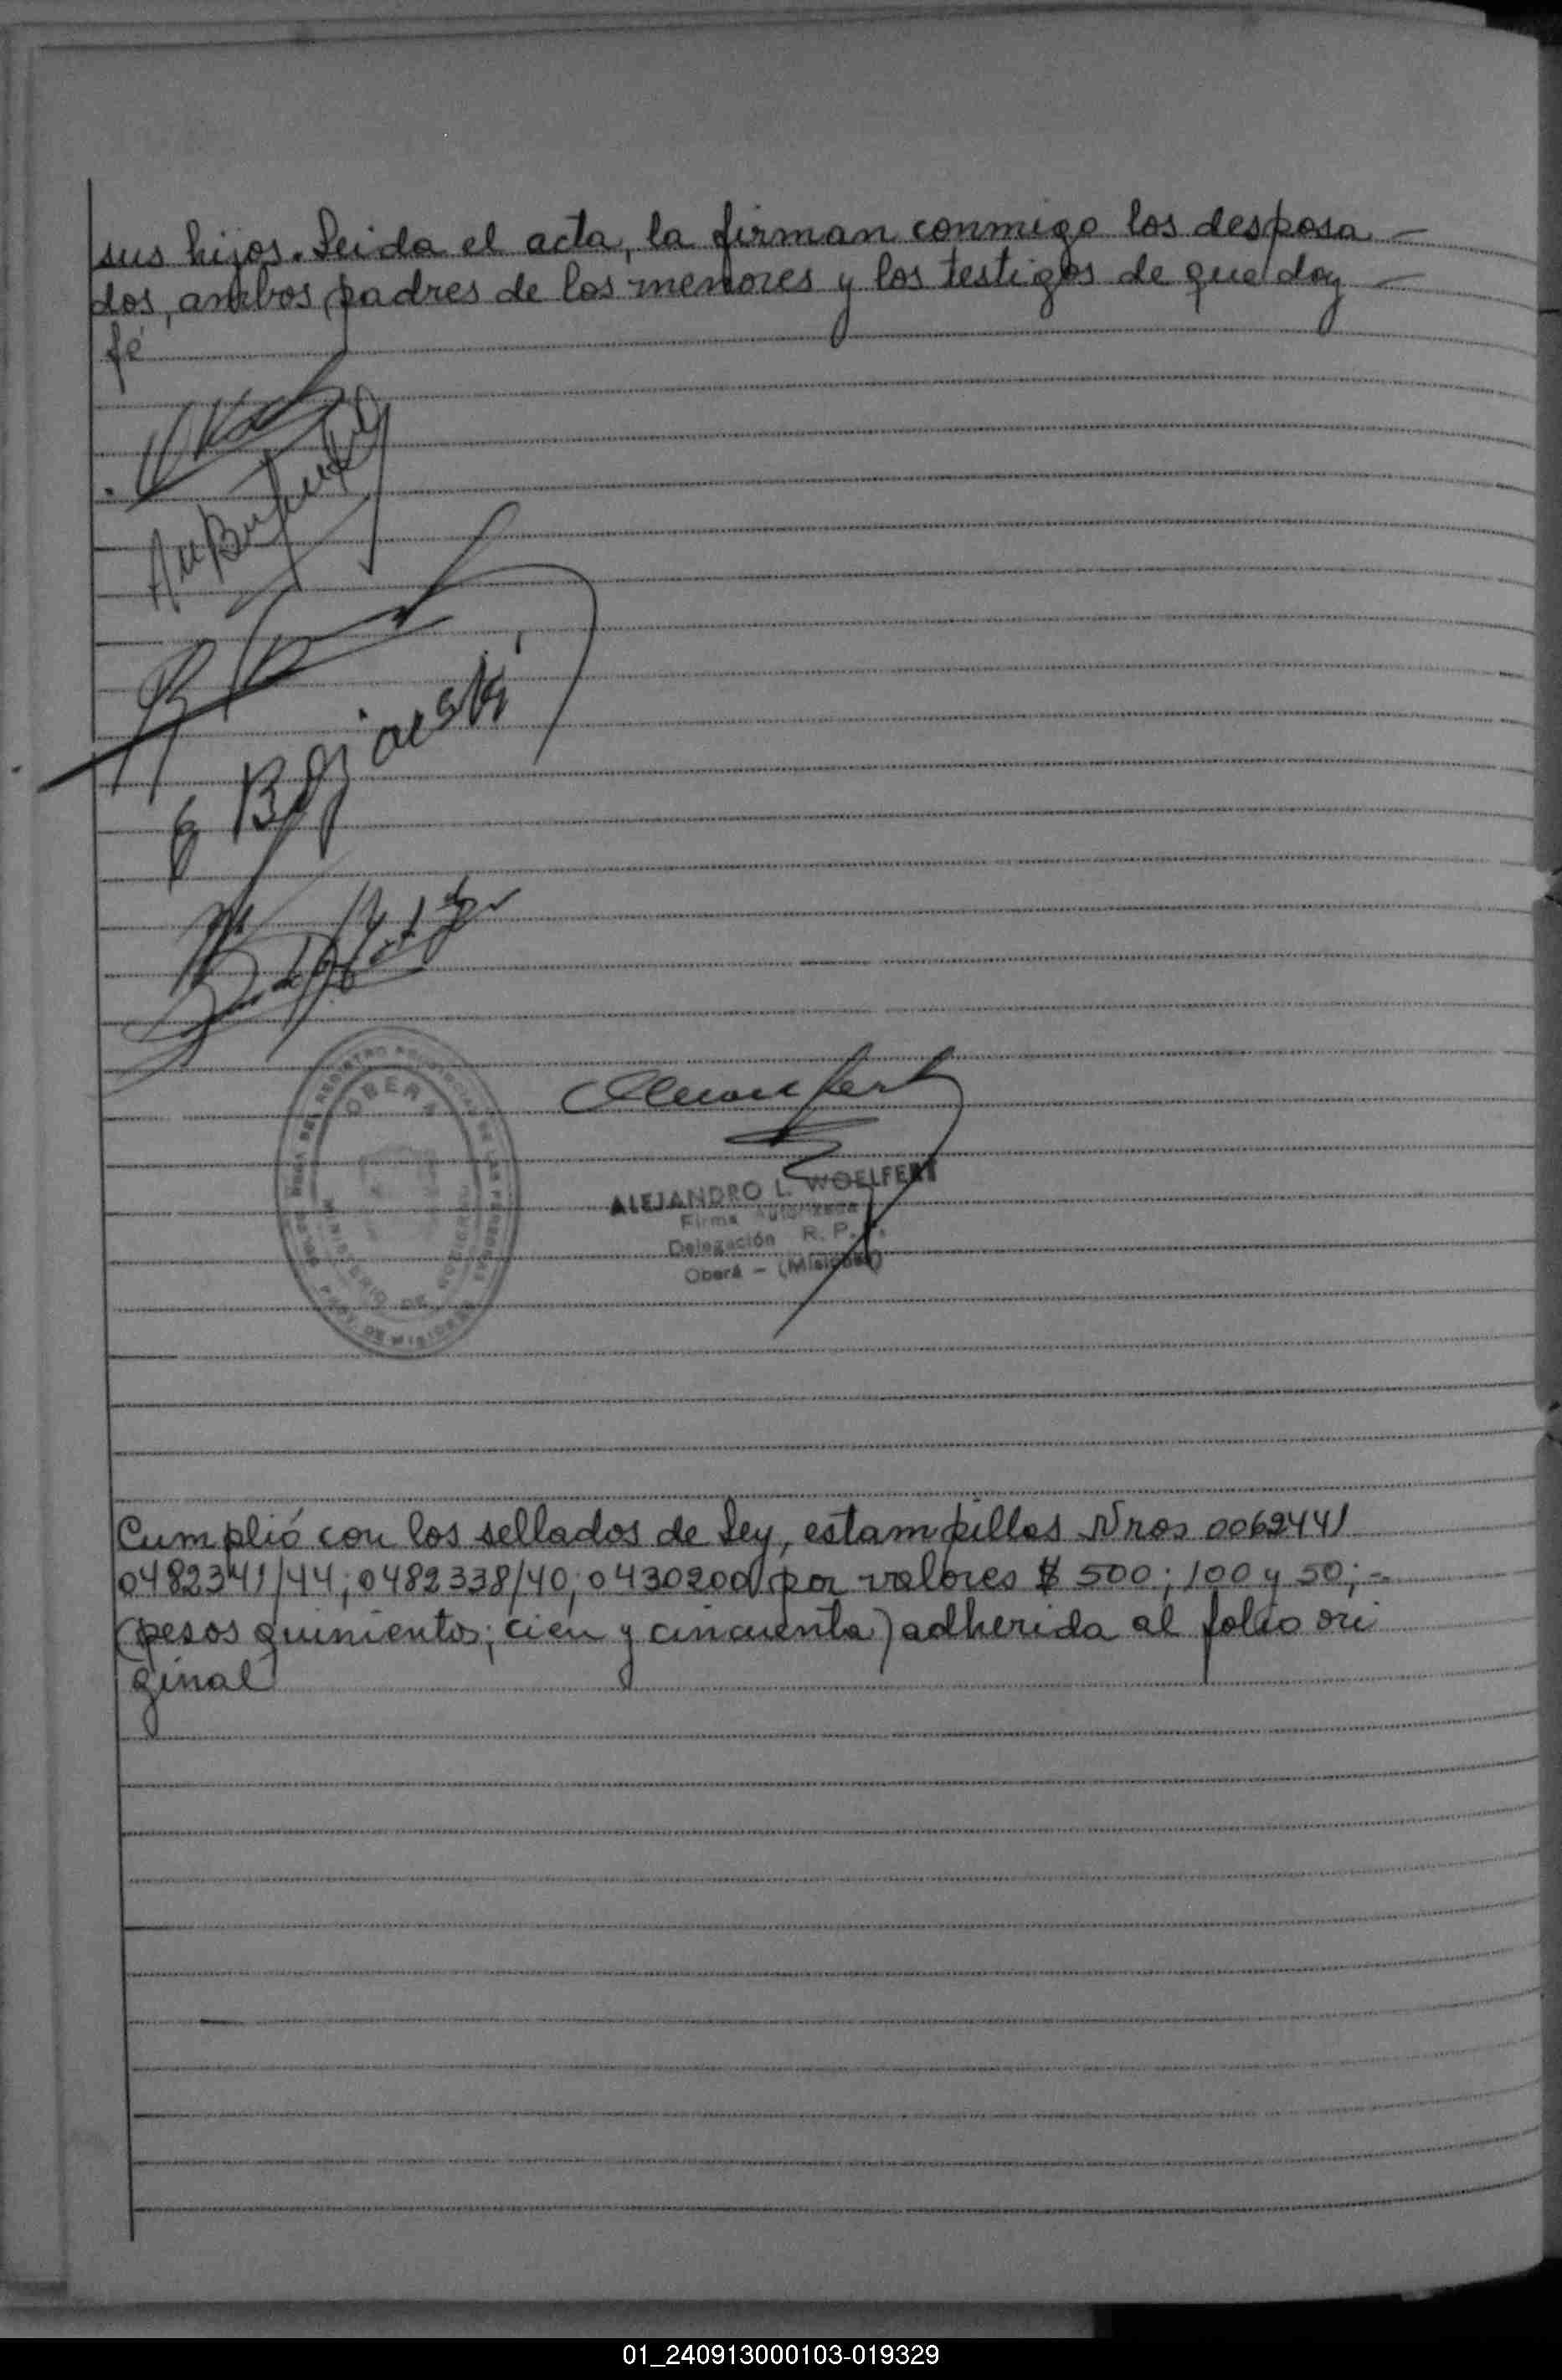 sus hijos. Leida el acta, la firman conmigo los desposa -
dos, ambos padres de los menores y los testigos de que doy -
fé
OBERA
MINISTERIO DE
PROV. DE MISIONES
ALEJANDRO L. WOELFERT
Firma Autorizada
Delegación R. P.
Oberá - (Misiones)
Cumplió con los sellados de Ley, estampillas Nros 0069441
0482341/44; 0482338/40; 0430200 por valores $ 500; 100 y 50; -
(pesos quinientos; cien y cincuenta) adherida al folio ori
ginal
01_240913000103-019329